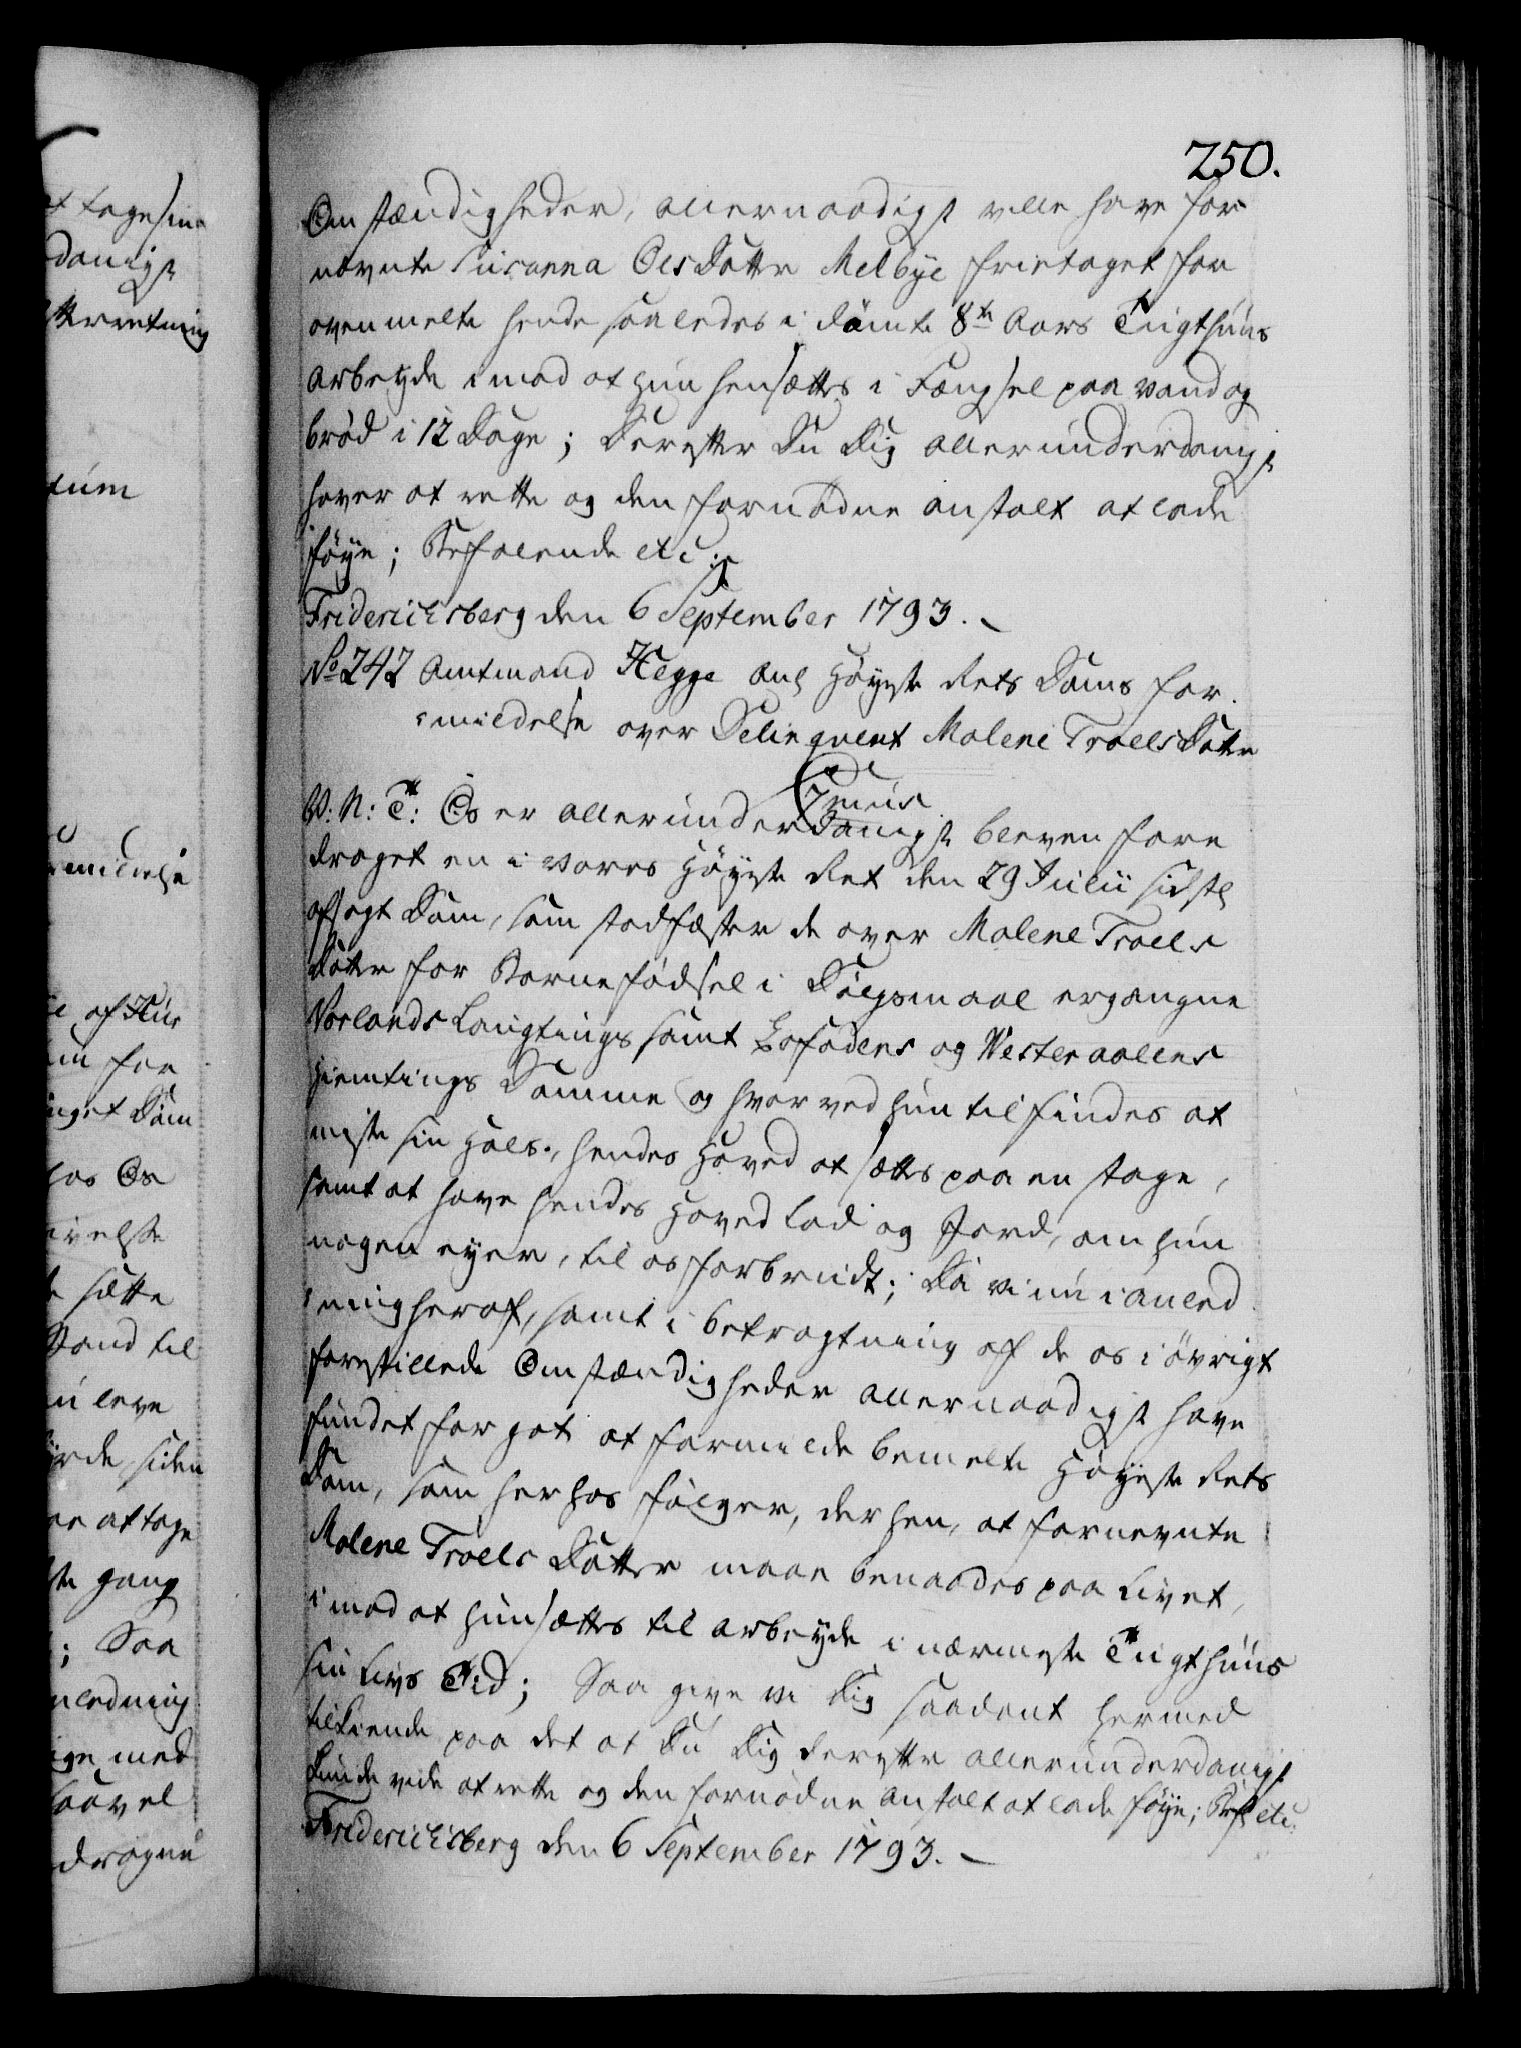 250.
Omstændigheder, allernaadigst ville have for
nevnte Susanna OlesDatter Melbye fritaget for
ovenmelte hende saaledes i dömte 8te Aars Tugthuus
Arbeyde imod at hun hensættes i Fængsel paa vand og
bröd i 12 Dage; Derefter Du Dig allerunderdanigst
haver at rette og den fornödne anstalt at lade
föye; Befalende etc:
Friderichsberg den 6 September 1793.
No 242 Amtmand Hegge anl Höyeste Rets Doms for
mildelse over Delinqvent Malene TroelsDatter
V: N: T: Os er allerunderdanigst bleven fore
draget en i vores Höyeste Ret den 29 Julii sidstl
afsagt Dom, som stadfæster de over Malene Troels
Datter for Barnefödsel i Dölgsmaal ergangne
Norlands Laugtings samt Lofodens og Vesteraalens
Hiemtings Domme og hvorved hun tilfindes at
miste sin Hals, hendes Hoved at sættes paa en stage,
samt at have hendes Hoved Lod og Jord, om hun
nogen eyer, til os forbrudt; Da vi nu i anled
ning heraf, samt i betragtning af de os i övrigt
forestillede Omstændigheder allernaadigst have
fundet for got at formilde bemelte Höyeste Rets
Dom, som herhos fölger, derhen, at fornevnte
Malene Troels Datter maae benaades paa Livet,
imod at hun sættes til arbeyde i nærmeste Tugthuus
sin Livs Tid; Saa give vi Dig saadant hermed
tilkiende paa det at Du Dig derefter allerunderdanigst
kunde vide at rette og den fornödne Anstalt at lade föye; Bef: etc.
Friderichsberg den 6 September 1793.